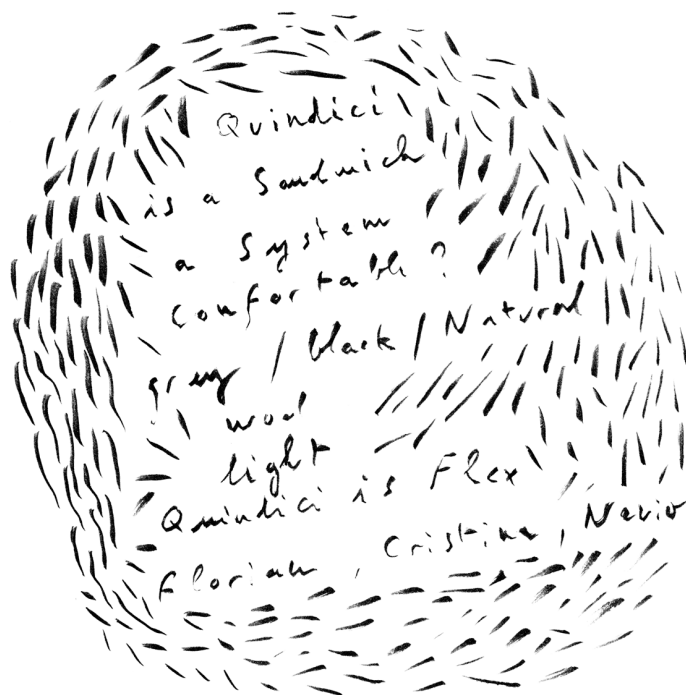 Quindici
is a Sandwich
a System
Comfortable ?
grey / black / Natural
wool
light
Quindici is Flex
Florian , Cristina , Nevio